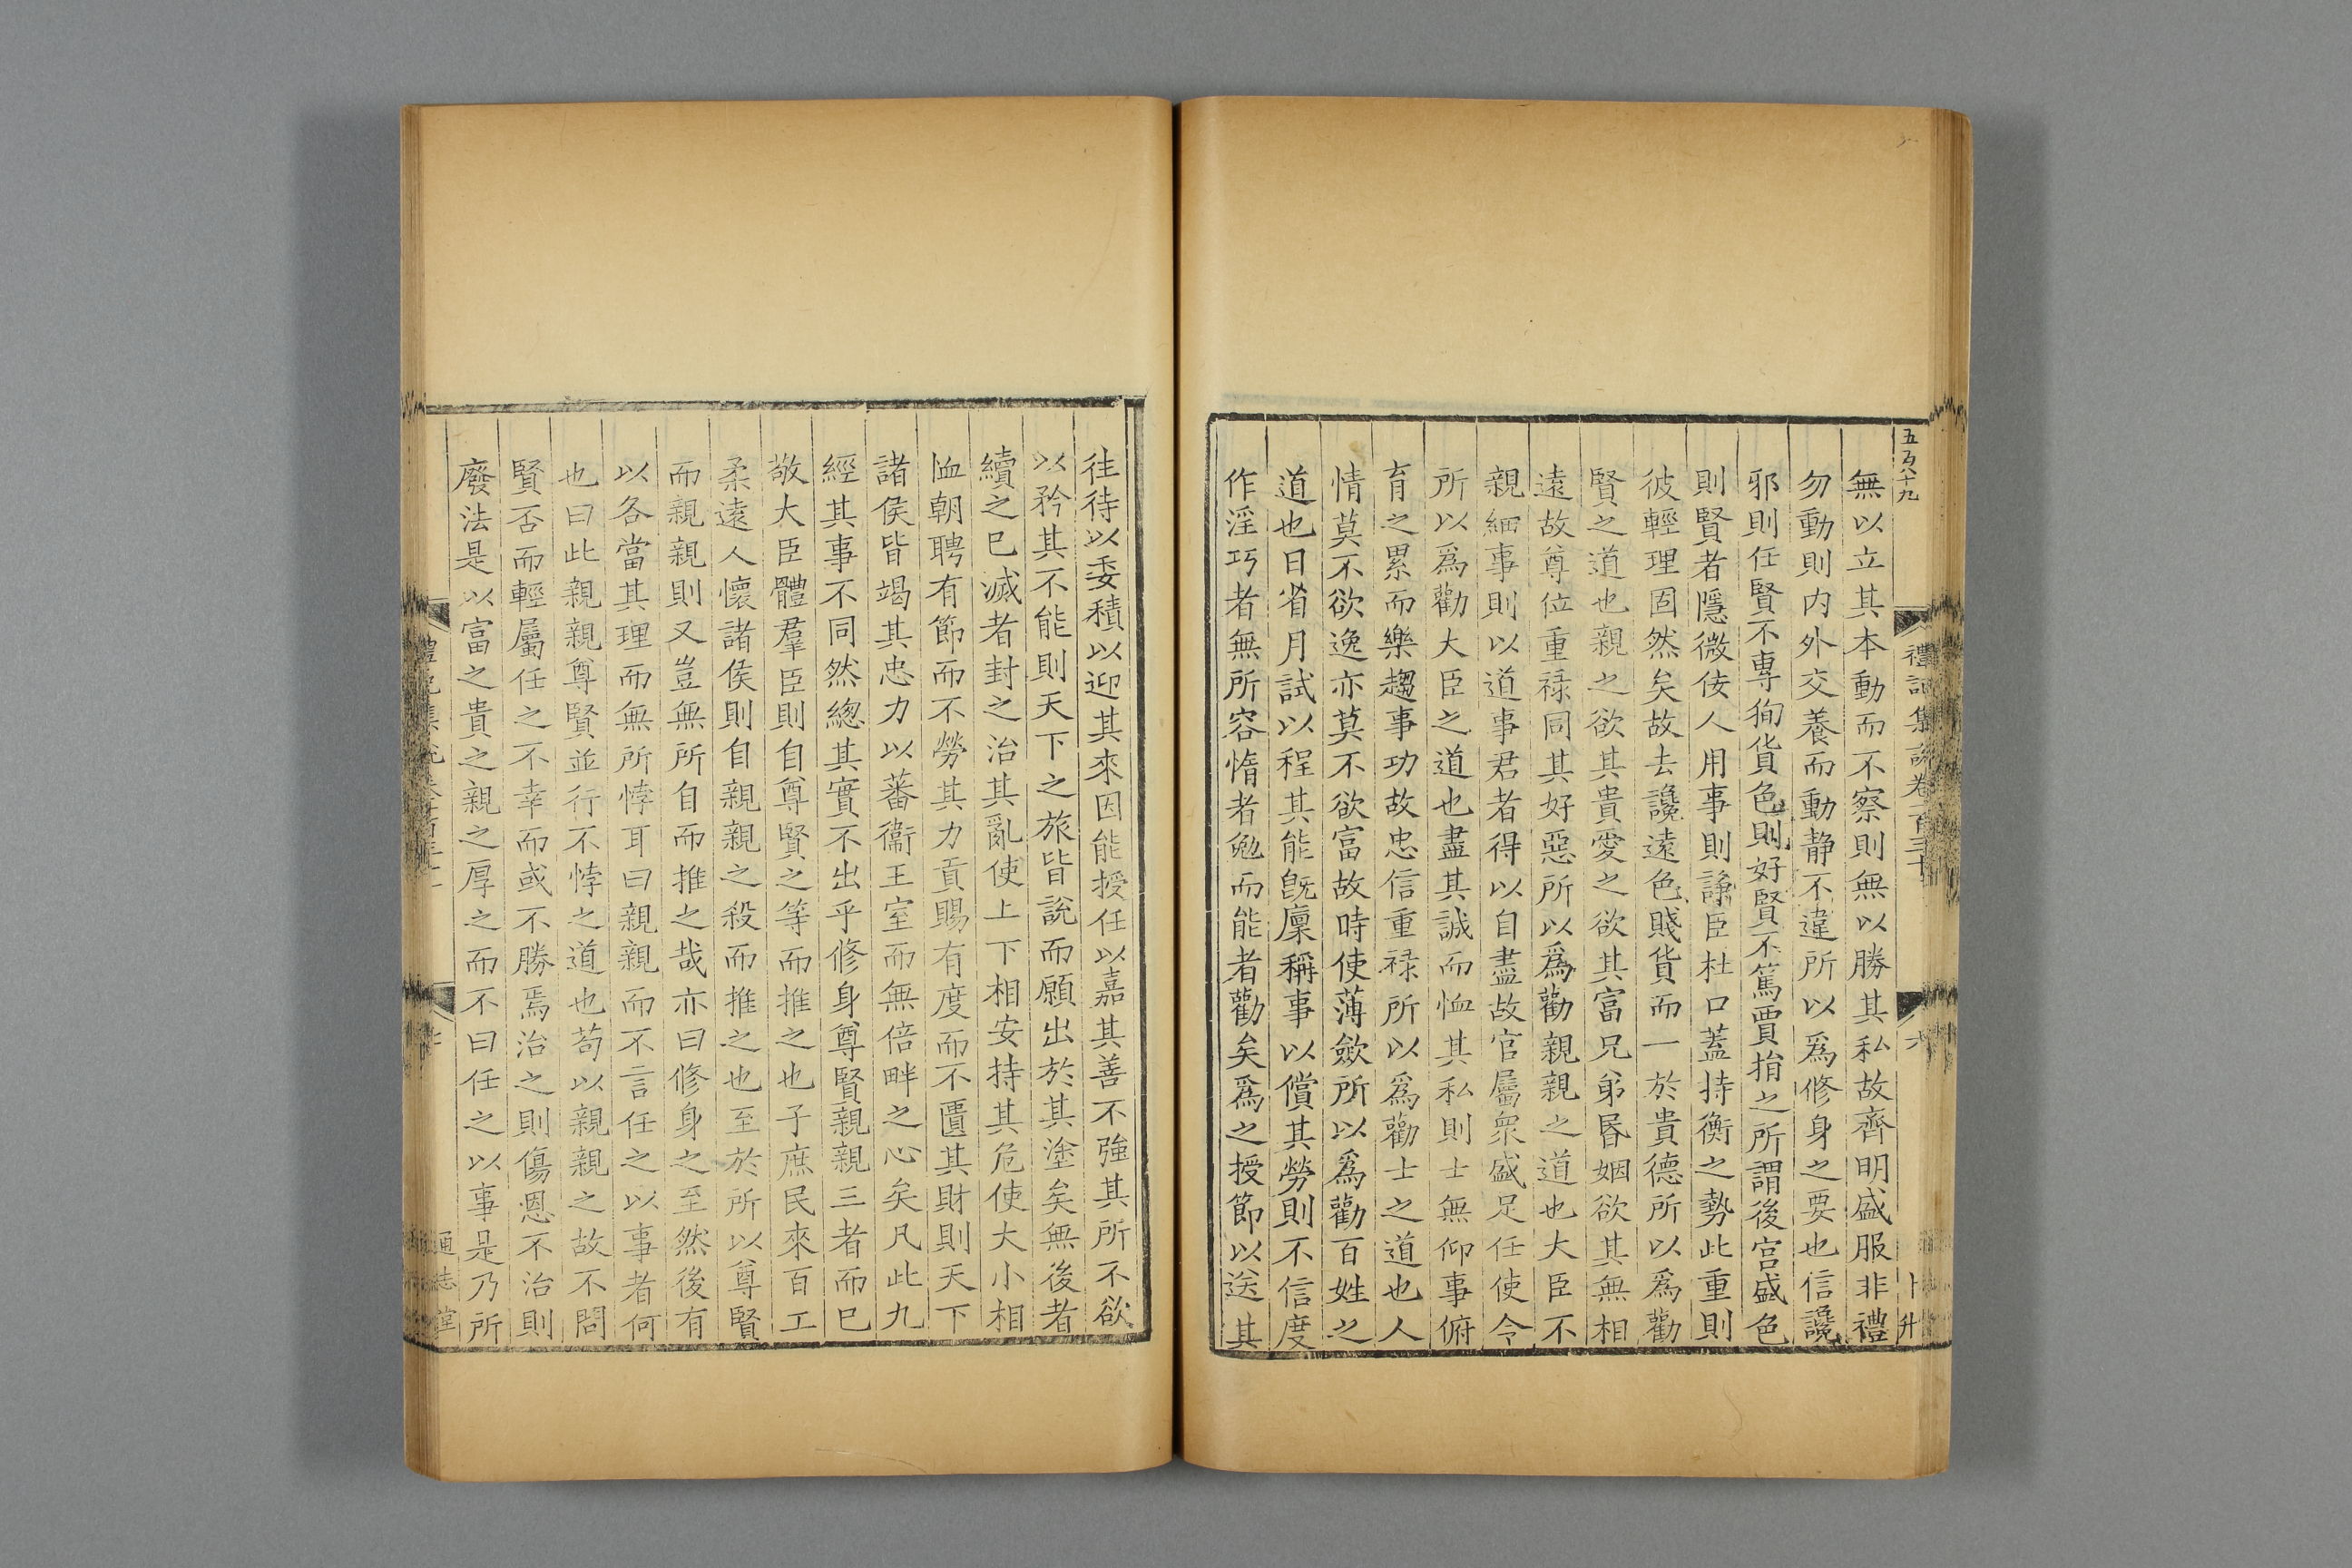 五百八十九
禮記集說卷百三十
六
卜升
無以立其本動而不察則無以勝其私故齊明盛服非禮
勿動則内外交養而動静不違所以爲修身之要也信讒
邪則任賢不專狥貨色則好賢不篤賈捐之所謂後宫盛色
則賢者隱微佞人用事則諍臣杜口蓋持衡之勢此重則
彼輕理固然矣故去讒遠色賤貨而一於貴德所以爲勸
賢之道也親之欲其貴愛之欲其富兄弟昬姻欲其無相
遠故尊位重禄同其好惡所以爲勸親親之道也大臣不
親細事則以道事君者得以自盡故官屬衆盛足任使令
所以爲勸大臣之道也盡其誠而恤其私則士無仰事俯
育之累而樂趨事功故忠信重禄所以爲勸士之道也人
情莫不欲逸亦莫不欲富故時使薄歛所以爲勸百姓之
道也日省月試以程其能旣廩稱事以償其勞則不信度
作淫巧者無所容惰者勉而能者勸矣爲之授節以送其
往待以委積以迎其來因能授任以嘉其善不強其所不欲
以矜其不能則天下之旅皆說而願出於其塗矣無後者
續之已滅者封之治其亂使上下相安持其危使大小相
恤朝聘有節而不勞其力貢賜有度而不匱其財則天下
諸侯皆竭其忠力以蕃衞王室而無倍畔之心矣凡此九
經其事不同然緫其實不出乎修身尊賢親親三者而已
敬大臣體羣臣則自尊賢之等而推之也子庶民來百工
柔遠人懷諸侯則自親親之殺而推之也至於所以尊賢
而親親則又豈無所自而推之哉亦曰修身之至然後有
以各當其理而無所悖耳曰親親而不言任之以事者何
也曰此親親尊賢並行不悖之道也苟以親親之故不問
賢否而輕屬任之不幸而或不勝焉治之則傷恩不治則
廢法是以富之貴之親之厚之而不曰任之以事是乃所
通志堂